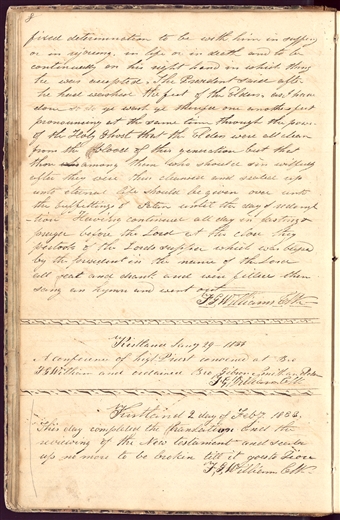 8
fixed determination to be with him in suffering
or in rejoicing, in life or in death and to be
continually on his right hand in which thing
he was accepted. The President said after
he had washed the feet of the Elders, as I have
done so do ye wash ye therefore one anothers feet
pronouncing at the same time through the power
of the Holy Ghost that the Elders were all clean
from the blood of this generation but that
those among them who should sin wilfully
after they were thus cleansed and sealed up
unto eternal life should be given over unto
the buffettings of Satan until the day of redemp
tion Having continued all day in fasting &
prayer before the Lord at the close they
partook of the Lords supper which was blessed
by the President in the name of the Lord
all eat and drank and were filled then
sang an hymn and went out
F G Williams Clk
Kirtland Jany 1833
A conference of high Priest convened at Bro
F G Williams and ordained Bro
F G Williams Clk
Kirtland 2 day of Feby 1833
This day completed the translation and the
reviewing of the New testament and sealed
up no more to be broken till it goes to Zion
F G Williams Clk